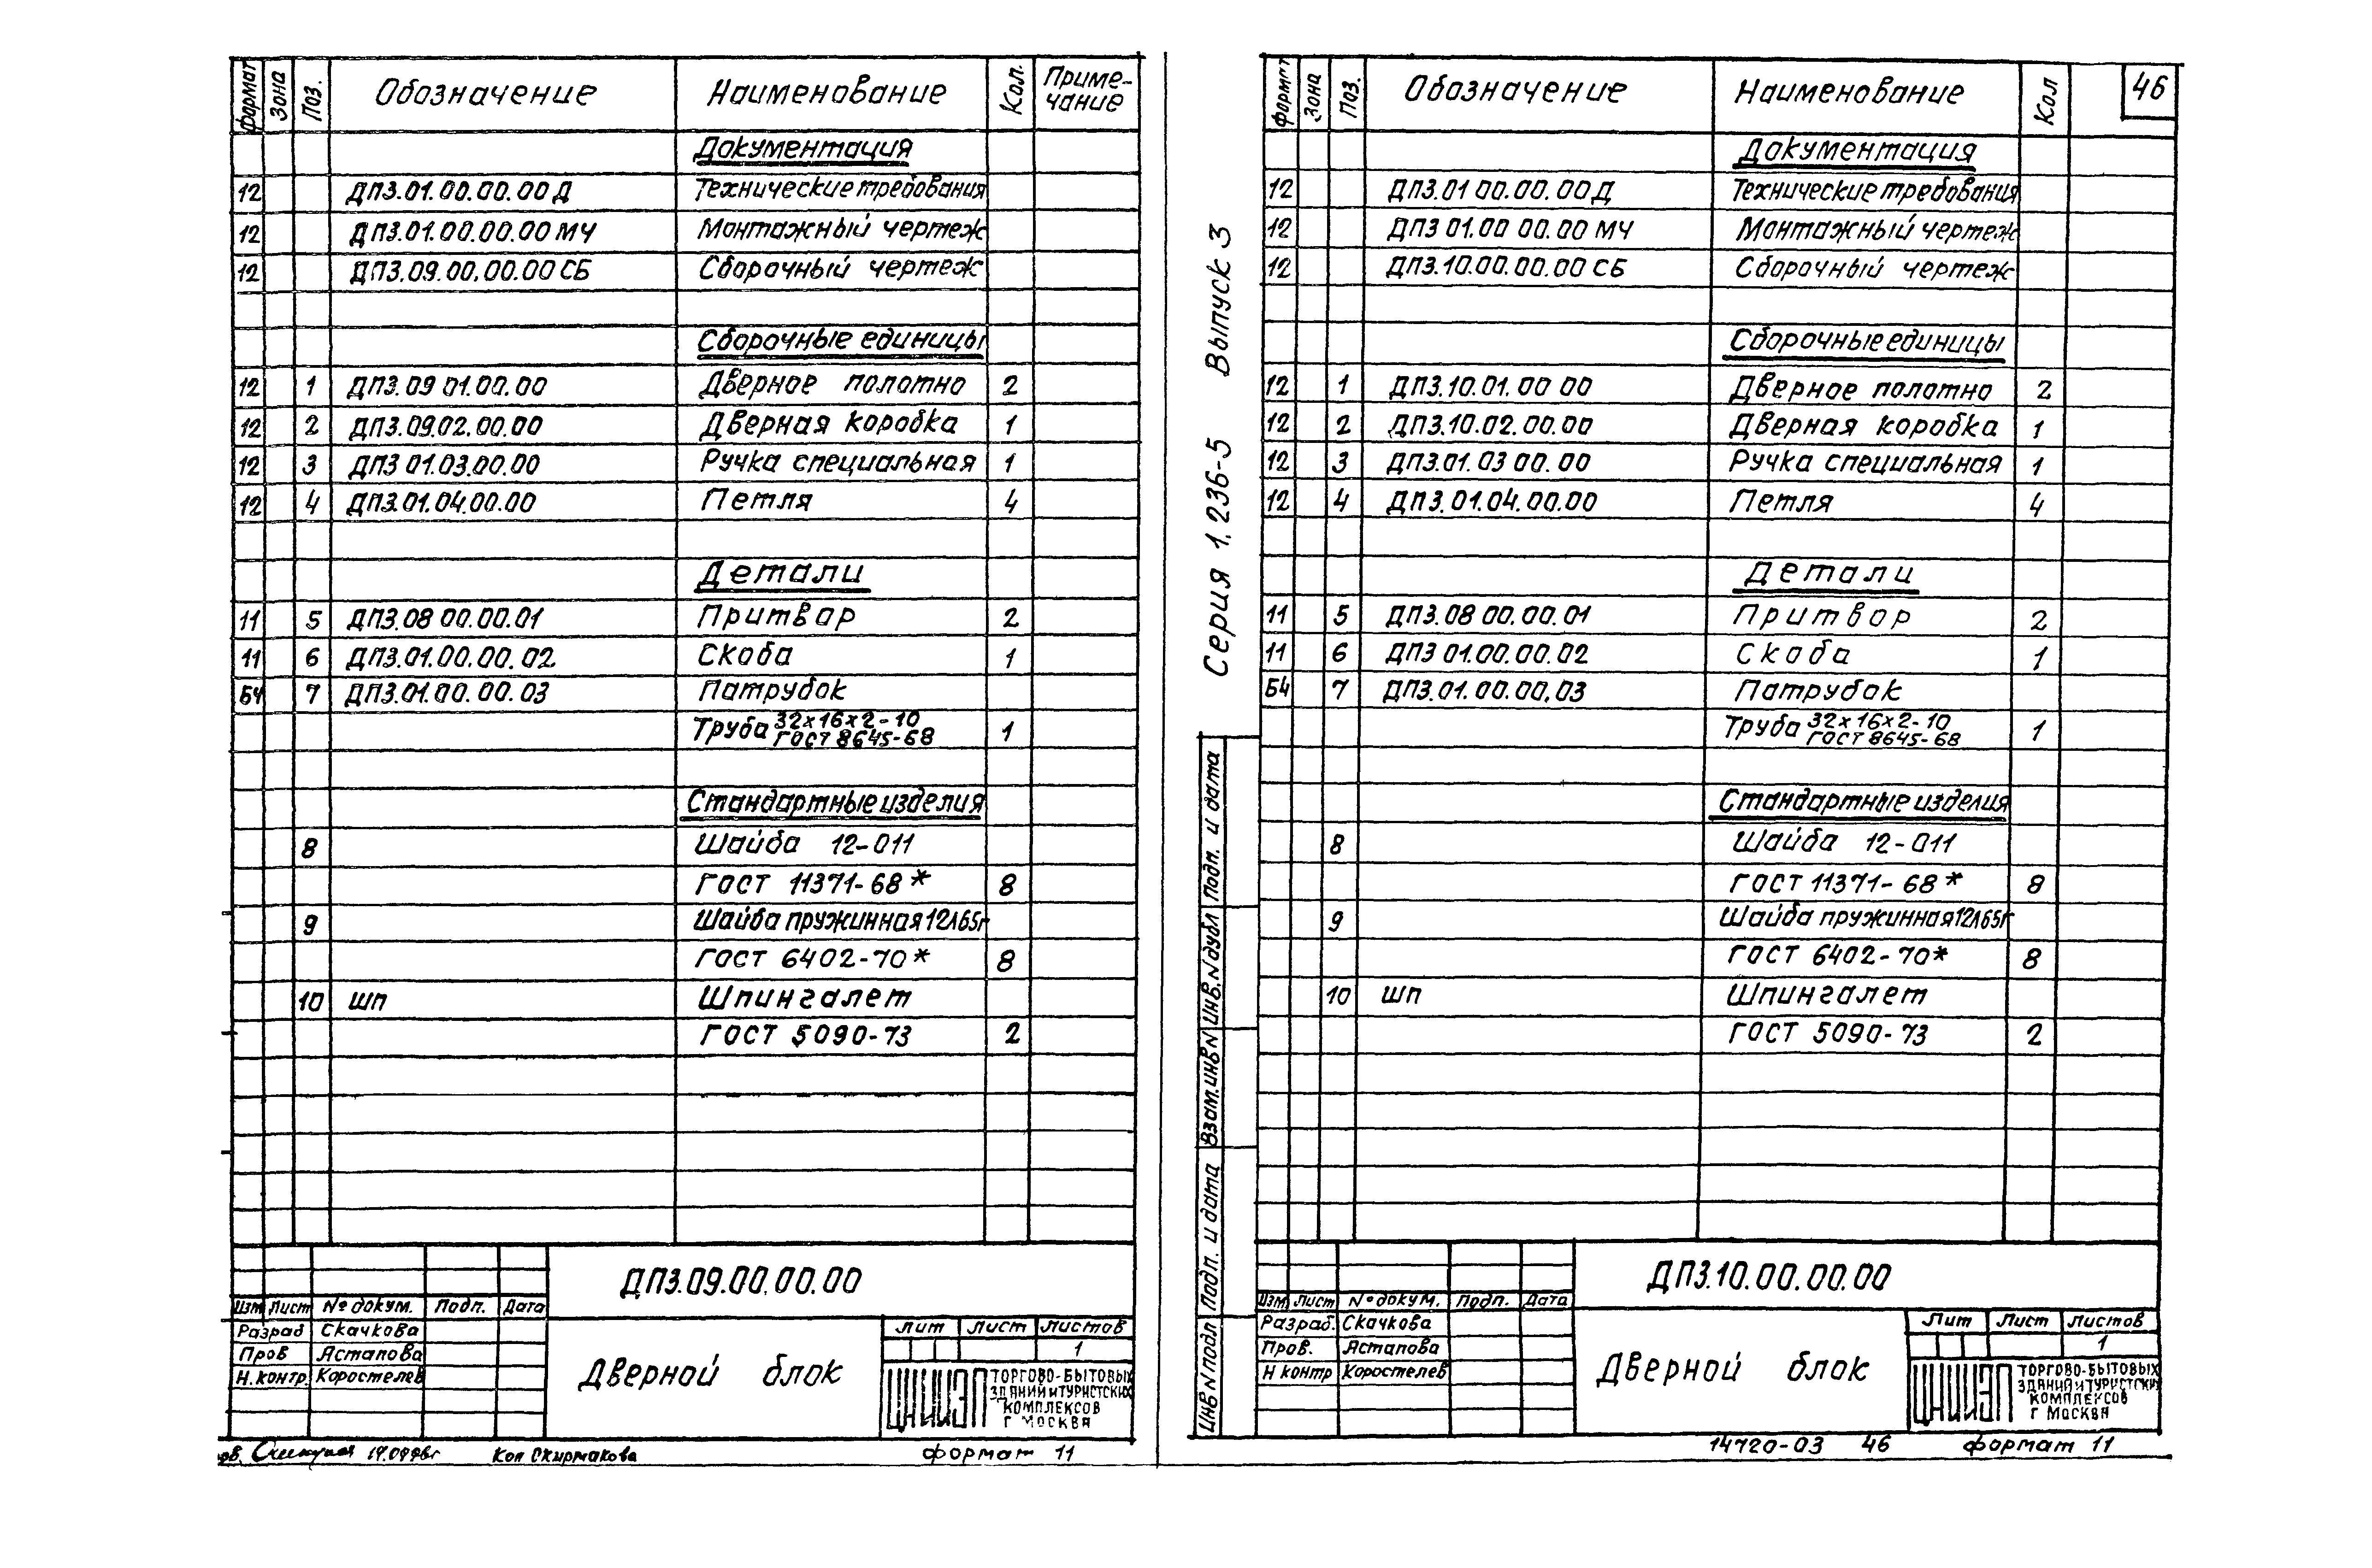 Формат Зона Поз. Обозначение Наименование Кол. Приме-
чание
Документация
12 ДПЗ.01.00.00.00 Д Технические требования
12 ДПЗ.01.00.00.00 МЧ Монтажный чертеж
12 ДПЗ.09.00.00.00 СБ Сборочный чертеж
Сборочные единицы
12 1 ДПЗ.09 01.00.00 Дверное полотно 2
12 2 ДПЗ.09.02.00.00 Дверная коробка 1
12 3 ДПЗ 01.03.00.00 Ручка специальная 1
12 4 ДПЗ.01.04.00.00 Петля 4
Детали
11 5 ДПЗ.08 00.00.01 Притвор 2
11 6 ДПЗ.01.00.00.02 Скоба 1
Б4 7 ДПЗ.01.00.00.03 Патрубок
Труба 32х16х2-10
ГОСТ 8645-68 1
Стандартные изделия
8 Шайба 12-011
ГОСТ 11371-68* 8
9 Шайба пружинная 12Л65Г
ГОСТ 6402-70* 8
10 ШП Шпингалет
ГОСТ 5090-73 2
ДПЗ.09.00.00.00
Изм Лист № докум. Подп. Дата
Разраб Скачкова
Пров Астапова
Н.контр. Коростелев
Дверной блок
Лит Лист Листов
1
ЦНИИЭП ТОРГОВО-БЫТОВЫХ
ЗДАНИЙ И ТУРИСТСКИХ
КОМПЛЕКСОВ
Г МОСКВА
Кол Скирмакова
формат 11
Серия 1.236-5 Выпуск 3
Инв N подл Подп. и дата Взам.инв N Инв.N дубл Подп. и дата
Формат Зона Поз. Обозначение Наименование Кол
46
Документация
12 ДПЗ.01 00.00.00 Д Технические требования
12 ДПЗ 01.00 00.00 МЧ Монтажный чертеж
12 ДПЗ.10.00.00.00 СБ Сборочный чертеж
Сборочные единицы
12 1 ДПЗ.10.01.00 00 Дверное полотно 2
12 2 ДПЗ.10.02.00.00 Дверная коробка 1
12 3 ДПЗ.01.03 00.00 Ручка специальная 1
12 4 ДПЗ.01.04.00.00 Петля 4
Детали
11 5 ДПЗ.08 00.00.01 Притвор 2
11 6 ДПЗ 01.00.00.02 Скоба 1
Б4 7 ДПЗ.01.00.00.03 Патрубок
Труба 32х16х2-10
ГОСТ 8645-68 1
Стандартные изделия
8 Шайба 12-011
ГОСТ 11371-68* 8
9 Шайба пружинная 12Л65Г
ГОСТ 6402-70* 8
10 ШП Шпингалет
ГОСТ 5090-73 2
ДПЗ.10.00.00.00
Изм Лист № докум. Подп. Дата
Разраб. Скачкова
Пров. Астапова
Н контр Коростелев
Дверной блок
Лит Лист Листов
1
ЦНИИЭП ТОРГОВО-БЫТОВЫХ
ЗДАНИЙ И ТУРИСТСКИХ
КОМПЛЕКСОВ
Г МОСКВА
14720-03 46 формат 11